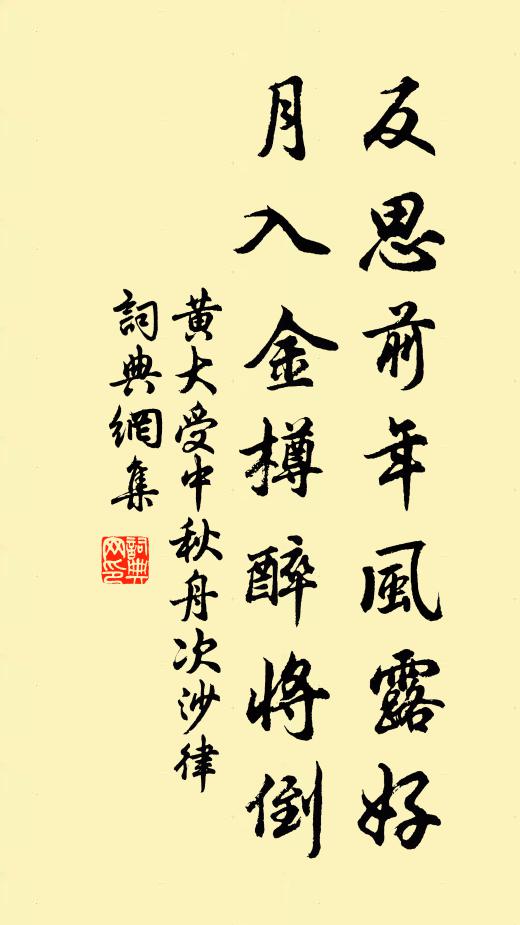 反思前年風露好
月入金樽醉將倒
黃大受中秋舟次沙律
詞典網集
詞典網印